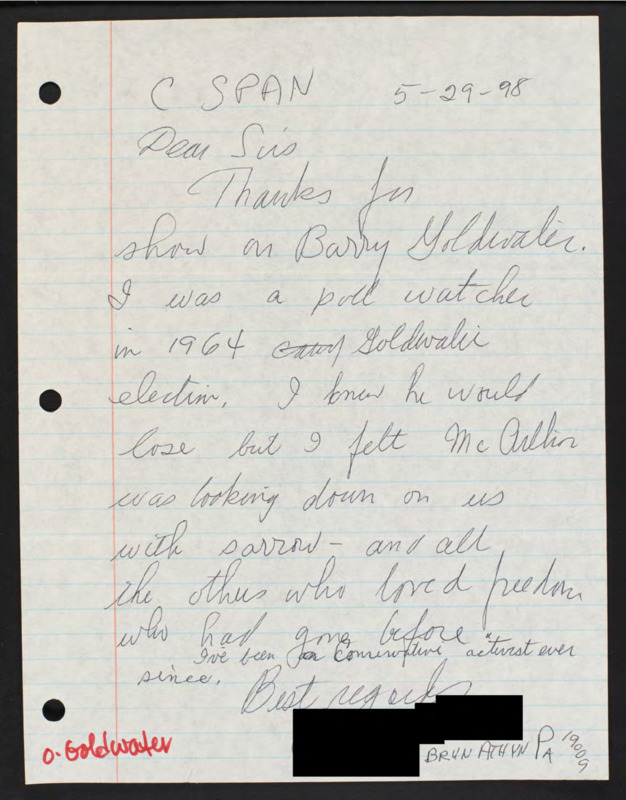 C SPAN 5-29-98
Dear Sirs
Thanks for
show on Barry Goldwater.
I was a poll watcher
in 1964 Goldwater
election. I knew he would
lose but I felt McArthur
was looking down on us
with sorrow - and all
the others who loved freedom
who had gone before.
I've been a conservative activist ever
since.
Best regards
BRYN ATHYN PA 19009
O. Goldwater